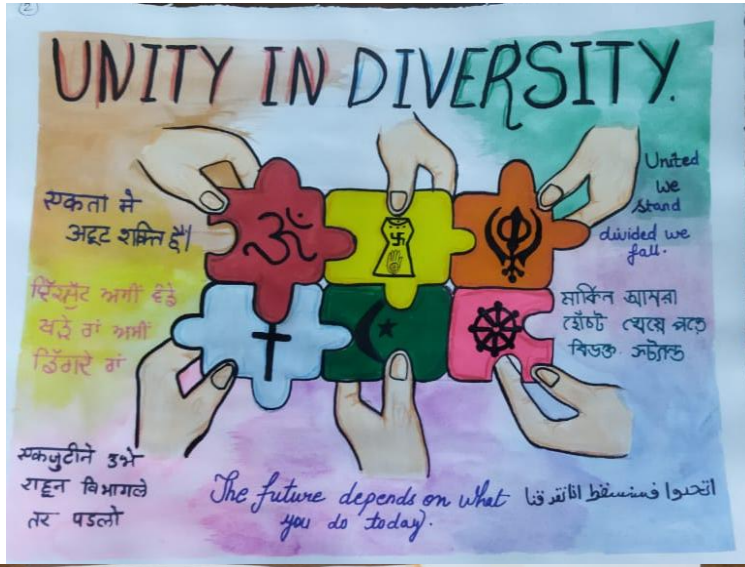 2
UNITY IN DIVERSITY.
एकता मे
अटूट शक्ति है।
United
We
Stand
divided we
fall.
ਅਸੀਂ ਵੰਡੇ
ਖੜੇ ਹਾਂ ਅਸੀਂ
ਡਿੱਗਦੇ ਹਾਂ
মার্কিন আমরা
হোঁচট খেয়ে পড়ে
বিভক্ত
एकजुटीने उभे
राहून विभागले
तर पडलो
The future depends on what
you do today.
اتحدوا فسنسقط اذا تفرقنا